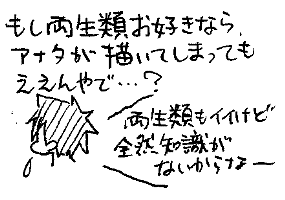 もし両生類お好きなら、
アナタが描いてしまっても
ええんやで…?
両生類もイイけど
全然知識が
ないからなー